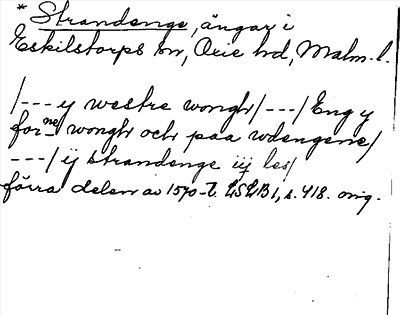 * Strandenge, ängar i
Eskilstorps sn, Oxie hd, Malm. l.
/--- y westre wongh/---/ Eng y
for ne wongh och paa wdengene/
---/ ij strandenge iij les/
förra delen av 1570-t. LSLB 1, s. 418. orig.